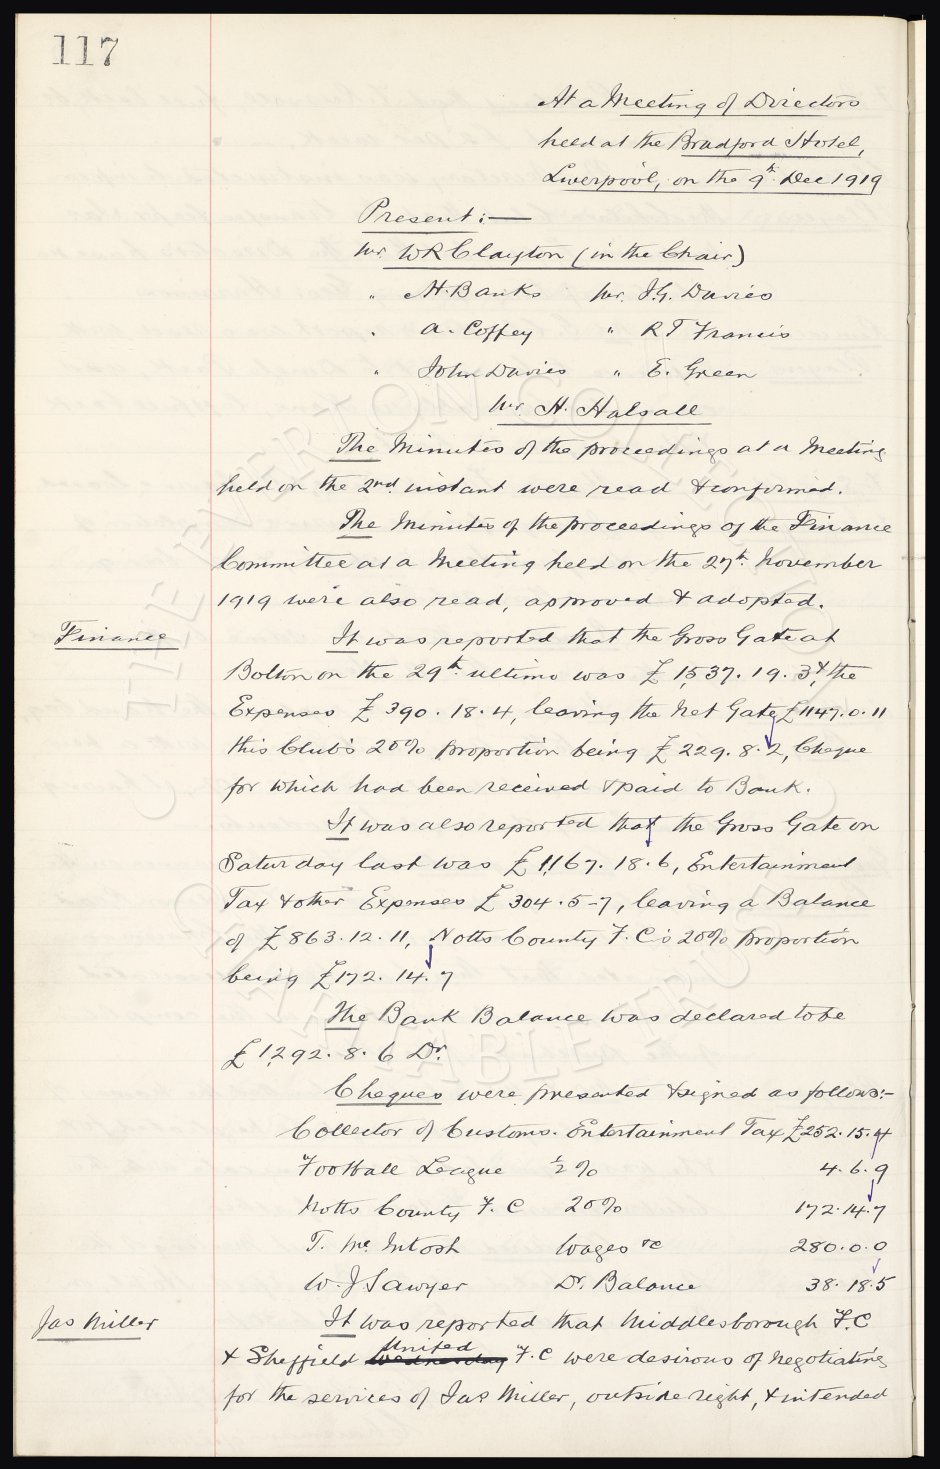 117
At a Meeting of Directors
held at the Bradford Hotel,
Liverpool, on the 9th. Dec 1919
Present:—
Mr. W R Clayton (in the Chair)
" H. Banks Mr. J. G. Davies
" A. Coffey " R T Francis
" John Davies " E. Green
Mr. H. Halsall
The Minutes of the proceedings at a Meeting
held on the 2nd. instant were read & confirmed.
The Minutes of the proceedings of the Finance
Committee at a Meeting held on the 27th. November
1919 were also read, approved & adopted.
Finance
It was reported that the Gross Gate at
Bolton on the 29th. ultimo was £1,537. 19. 3, the
Expenses £390. 18. 4, leaving the Net Gate £1147. 0. 11
this Club's 20% proportion being £229. 8. 2, Cheque
for which had been received & paid to Bank.
It was also reported that the Gross Gate on
Saturday last was £1,167. 18. 6, Entertainment
Tax & other Expenses £304. 5-7, leaving a Balance
of £863. 12. 11, Notts County F. C's 20% proportion
being £172. 14. 7
The Bank Balance was declared to be
£1,292. 8. 6 Dr.
Cheques were presented & signed as follows:-
Collector of Customs. Entertainment Tax £252. 15. 4
Football League ½% 4. 6. 9
Notts County F. C 20% 172. 14. 7
T. Mc Intosh Wages &c 280. 0. 0
W. J Sawyer Dr. Balance 38. 18. 5
Jas Miller
It was reported that Middlesborough F. C
& Sheffield Wednesday United F. C were desirous of negotiating
for the services of Jas Miller, outside right, & intended